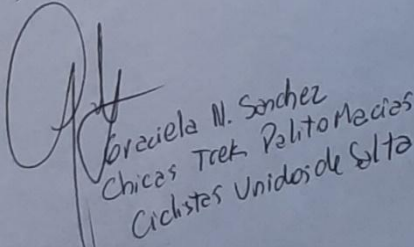 Graciela N. Sanchez
Chicas Trek Palito Macias
Ciclistas Unidos de Salta